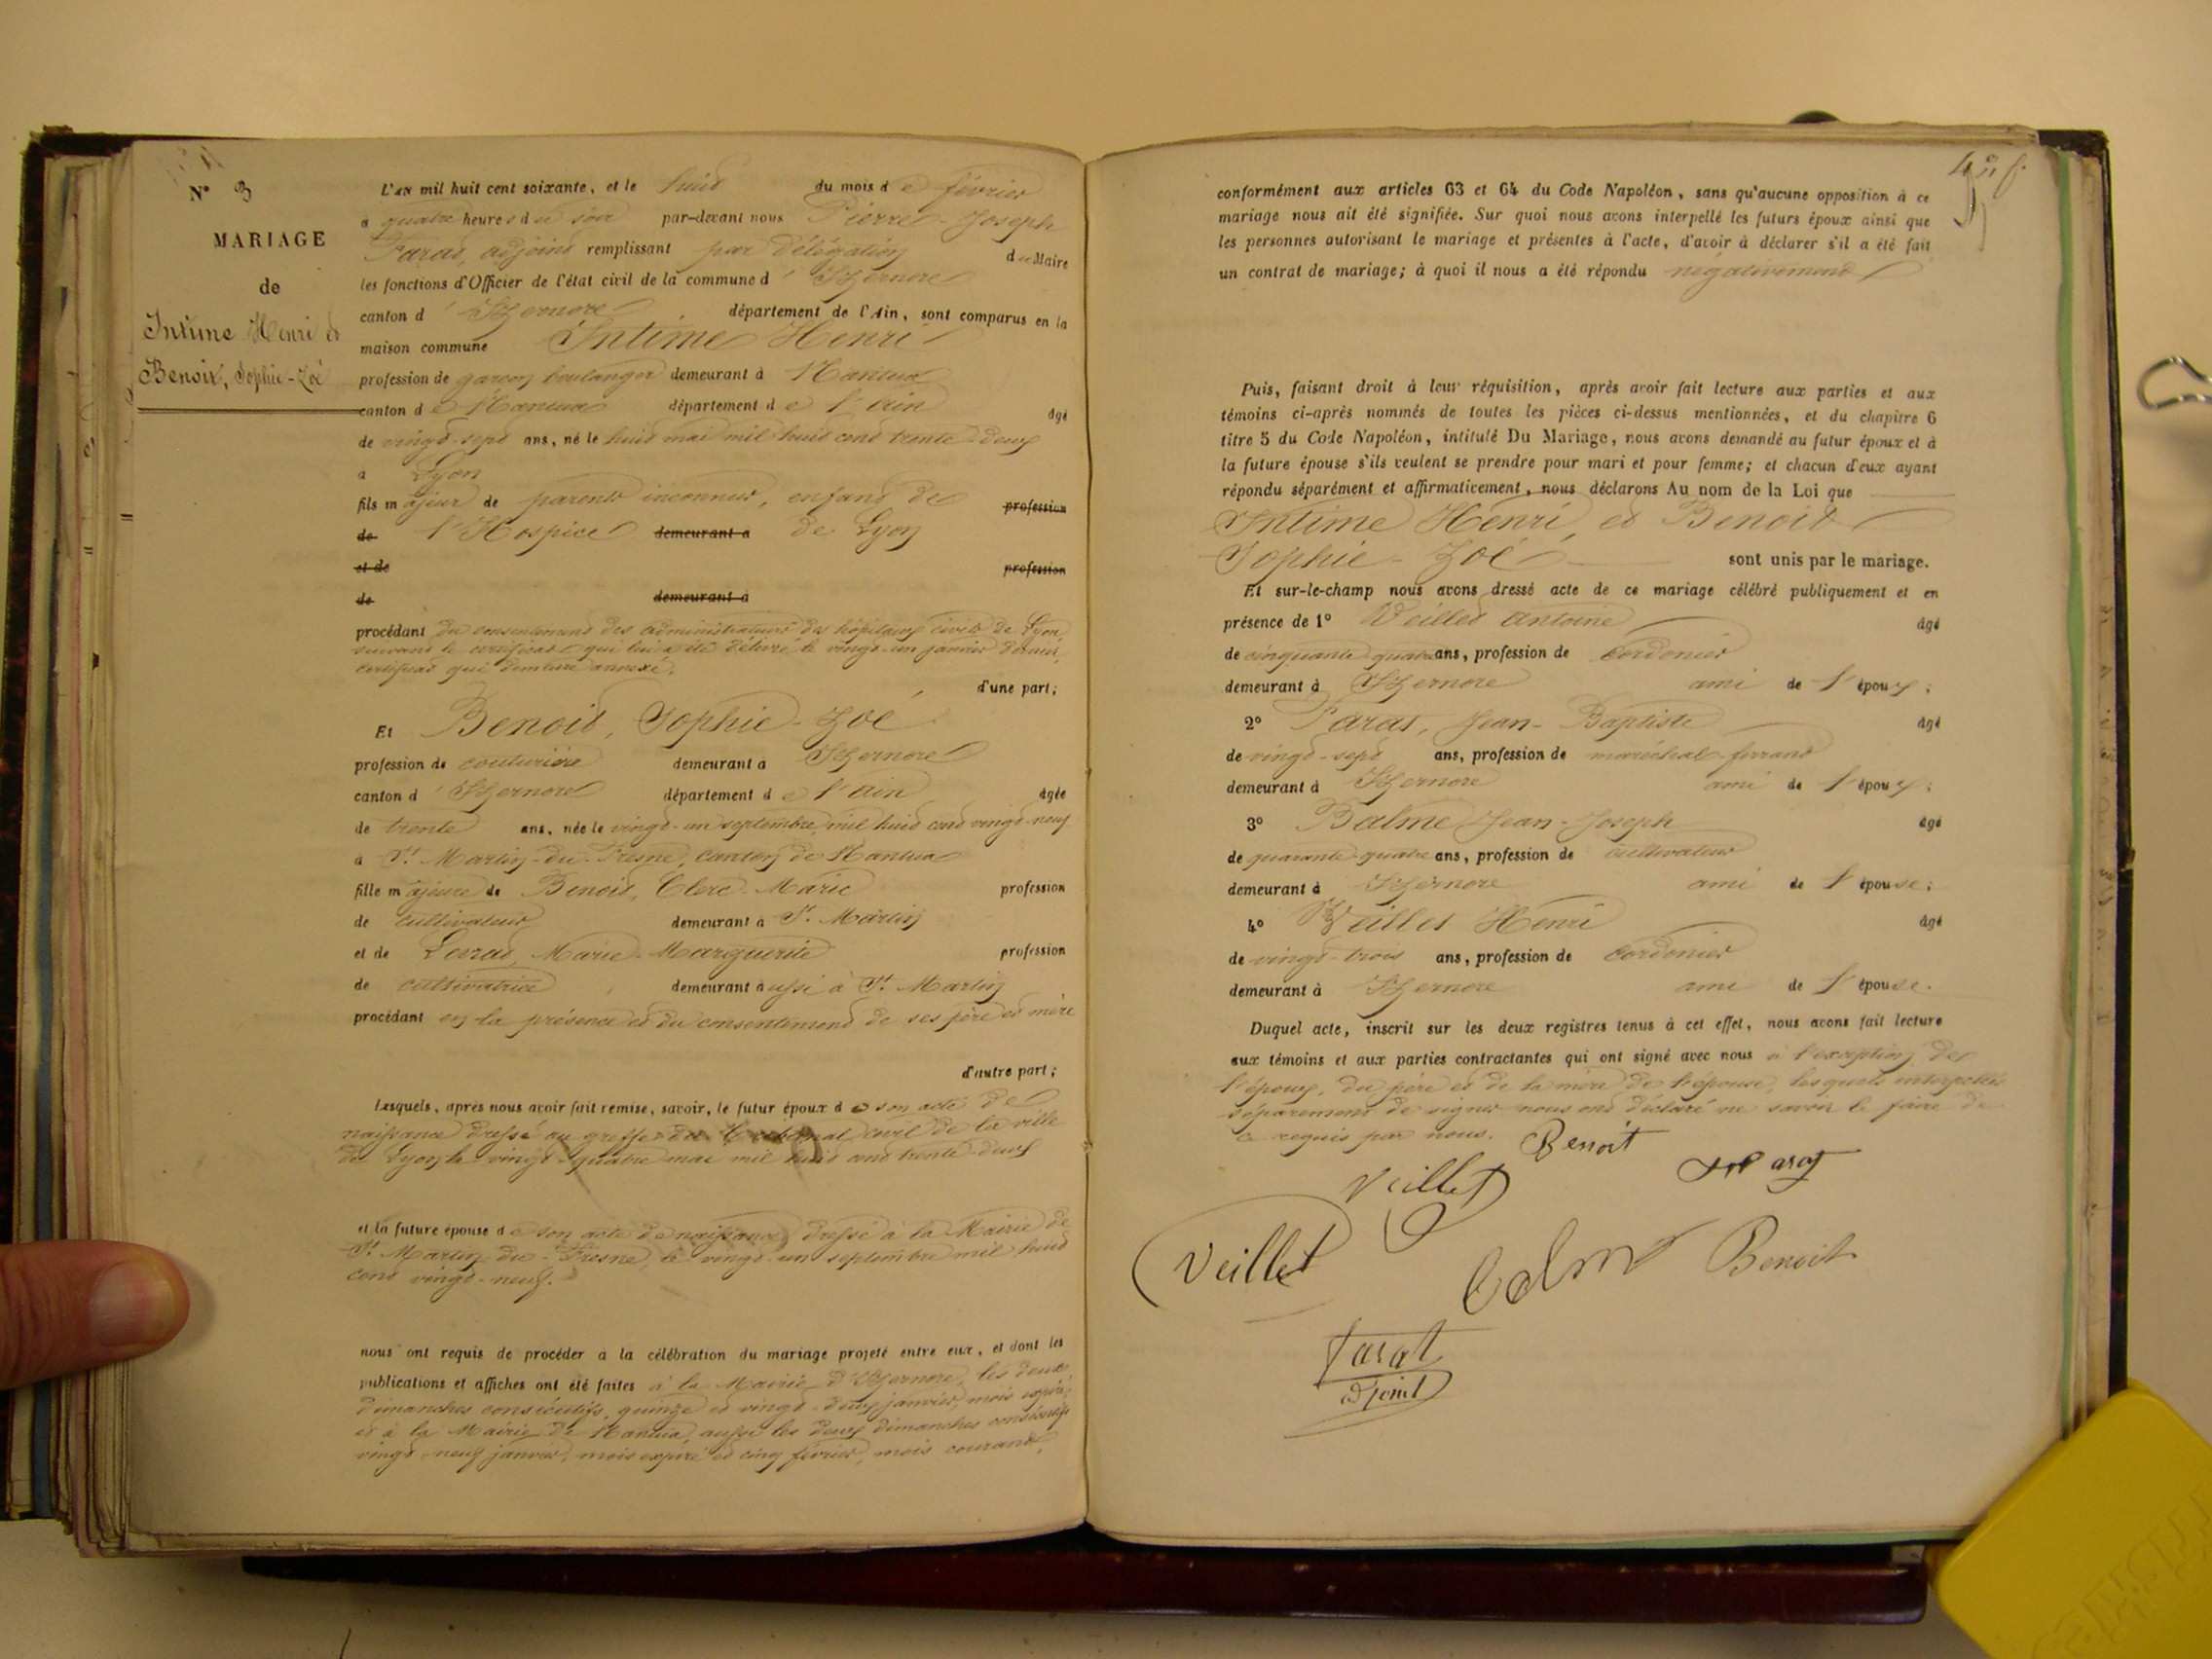 N° 3
MARIAGE
de
Intime Henri et
Benoit, Sophie-Zoé
L'an mil huit cent soixante, et le huit du mois de février
à quatre heures du soir par-devant nous Pierre-Joseph
Tarat, adjoint remplissant par délégation du Maire
les fonctions d'Officier de l'état civil de la commune d'Izernore
canton d'Izernore département de l'Ain, sont comparus en la
maison commune Intime Henri
profession de garçon boulanger demeurant à Nantua
canton de Nantua département de l'ain âgé
de vingt-sept ans, né le huit mai mil huit cent trente-deux
à Lyon
fils majeur de parents inconnus, enfant de profession
de l'Hospice demeurant à de Lyon
et de profession
de demeurant à
procédant du consentement des administrateurs des hôpitaux civils de Lyon
suivant le certificat qui lui a été délivré le vingt-un janvier dernier,
certificat qui demeure annexé.
d'une part;
Et Benoit, Sophie-Zoé
profession de couturière demeurant à Izernore
canton d'Izernore département de l'ain âgée
de trente ans, née le vingt-un septembre mil huit cent vingt-neuf
à St Martin-du-Fresne, canton de Nantua
fille majeure de Benoit, Clerc-Marie profession
de cultivateur demeurant à St Martin
et de Marie-Marguerite profession
de cultivatrice demeurant aussi à St Martin
procédant en la présence et du consentement de ses père et mère
d'autre part;
Lesquels, après nous avoir fait remise, savoir, le futur époux de son acte de
naissance dressé au greffe du tribunal civil de la ville
de Lyon le vingt-quatre mai mil huit cent trente-deux
et la future épouse de son acte de naissance dressé à la Mairie de
St Martin-du-Fresne, le vingt-un septembre mil huit
cent vingt-neuf.
nous ont requis de procéder à la célébration du mariage projeté entre eux, et dont les
publications et affiches ont été faites à la Mairie d'Izernore, les deux
dimanches consécutifs, quinze et vingt-deux janvier, mois expiré,
et à la Mairie de Nantua, aussi les deux dimanches consécutifs
vingt-neuf janvier, mois expiré et cinq février, mois courant,
conformément aux articles 63 et 64 du Code Napoléon, sans qu'aucune opposition à ce
mariage nous ait été signifiée. Sur quoi nous avons interpellé les futurs époux ainsi que
les personnes autorisant le mariage et présentes à l'acte, d'avoir à déclarer s'il a été fait
un contrat de mariage; à quoi il nous a été répondu négativement
Puis, faisant droit à leur réquisition, après avoir fait lecture aux parties et aux
témoins ci-après nommés de toutes les pièces ci-dessus mentionnées, et du chapitre 6
titre 5 du Code Napoléon, intitulé Du Mariage, nous avons demandé au futur époux et à
la future épouse s'ils veulent se prendre pour mari et pour femme; et chacun d'eux ayant
répondu séparément et affirmativement, nous déclarons Au nom de la Loi que
Intime Henri, et Benoit
Sophie-Zoé sont unis par le mariage.
Et sur-le-champ nous avons dressé acte de ce mariage célébré publiquement et en
présence de 1° Veillet Antoine âgé
de cinquante-quatre ans, profession de cordonier
demeurant à Izernore ami de l'époux;
2° Tarat, Jean-Baptiste âgé
de vingt-sept ans, profession de maréchal-ferrant
demeurant à Izernore ami de l'époux;
3° Balme Jean-Joseph âgé
de quarante-quatre ans, profession de cultivateur
demeurant à Izernore ami de l'épouse;
4° Veillet Henri âgé
de vingt-trois ans, profession de cordonier
demeurant à Izernore ami de l'épouse.
Duquel acte, inscrit sur les deux registres tenus à cet effet, nous avons fait lecture
aux témoins et aux parties contractantes qui ont signé avec nous à l'exception de
l'époux, du père et de la mère de l'épouse, lesquels interpellés
séparément de signer nous ont déclaré ne savoir le faire de
ce requis par nous.
Benoit
Veillet
Veillet
Benoit
Tarat
adjoint